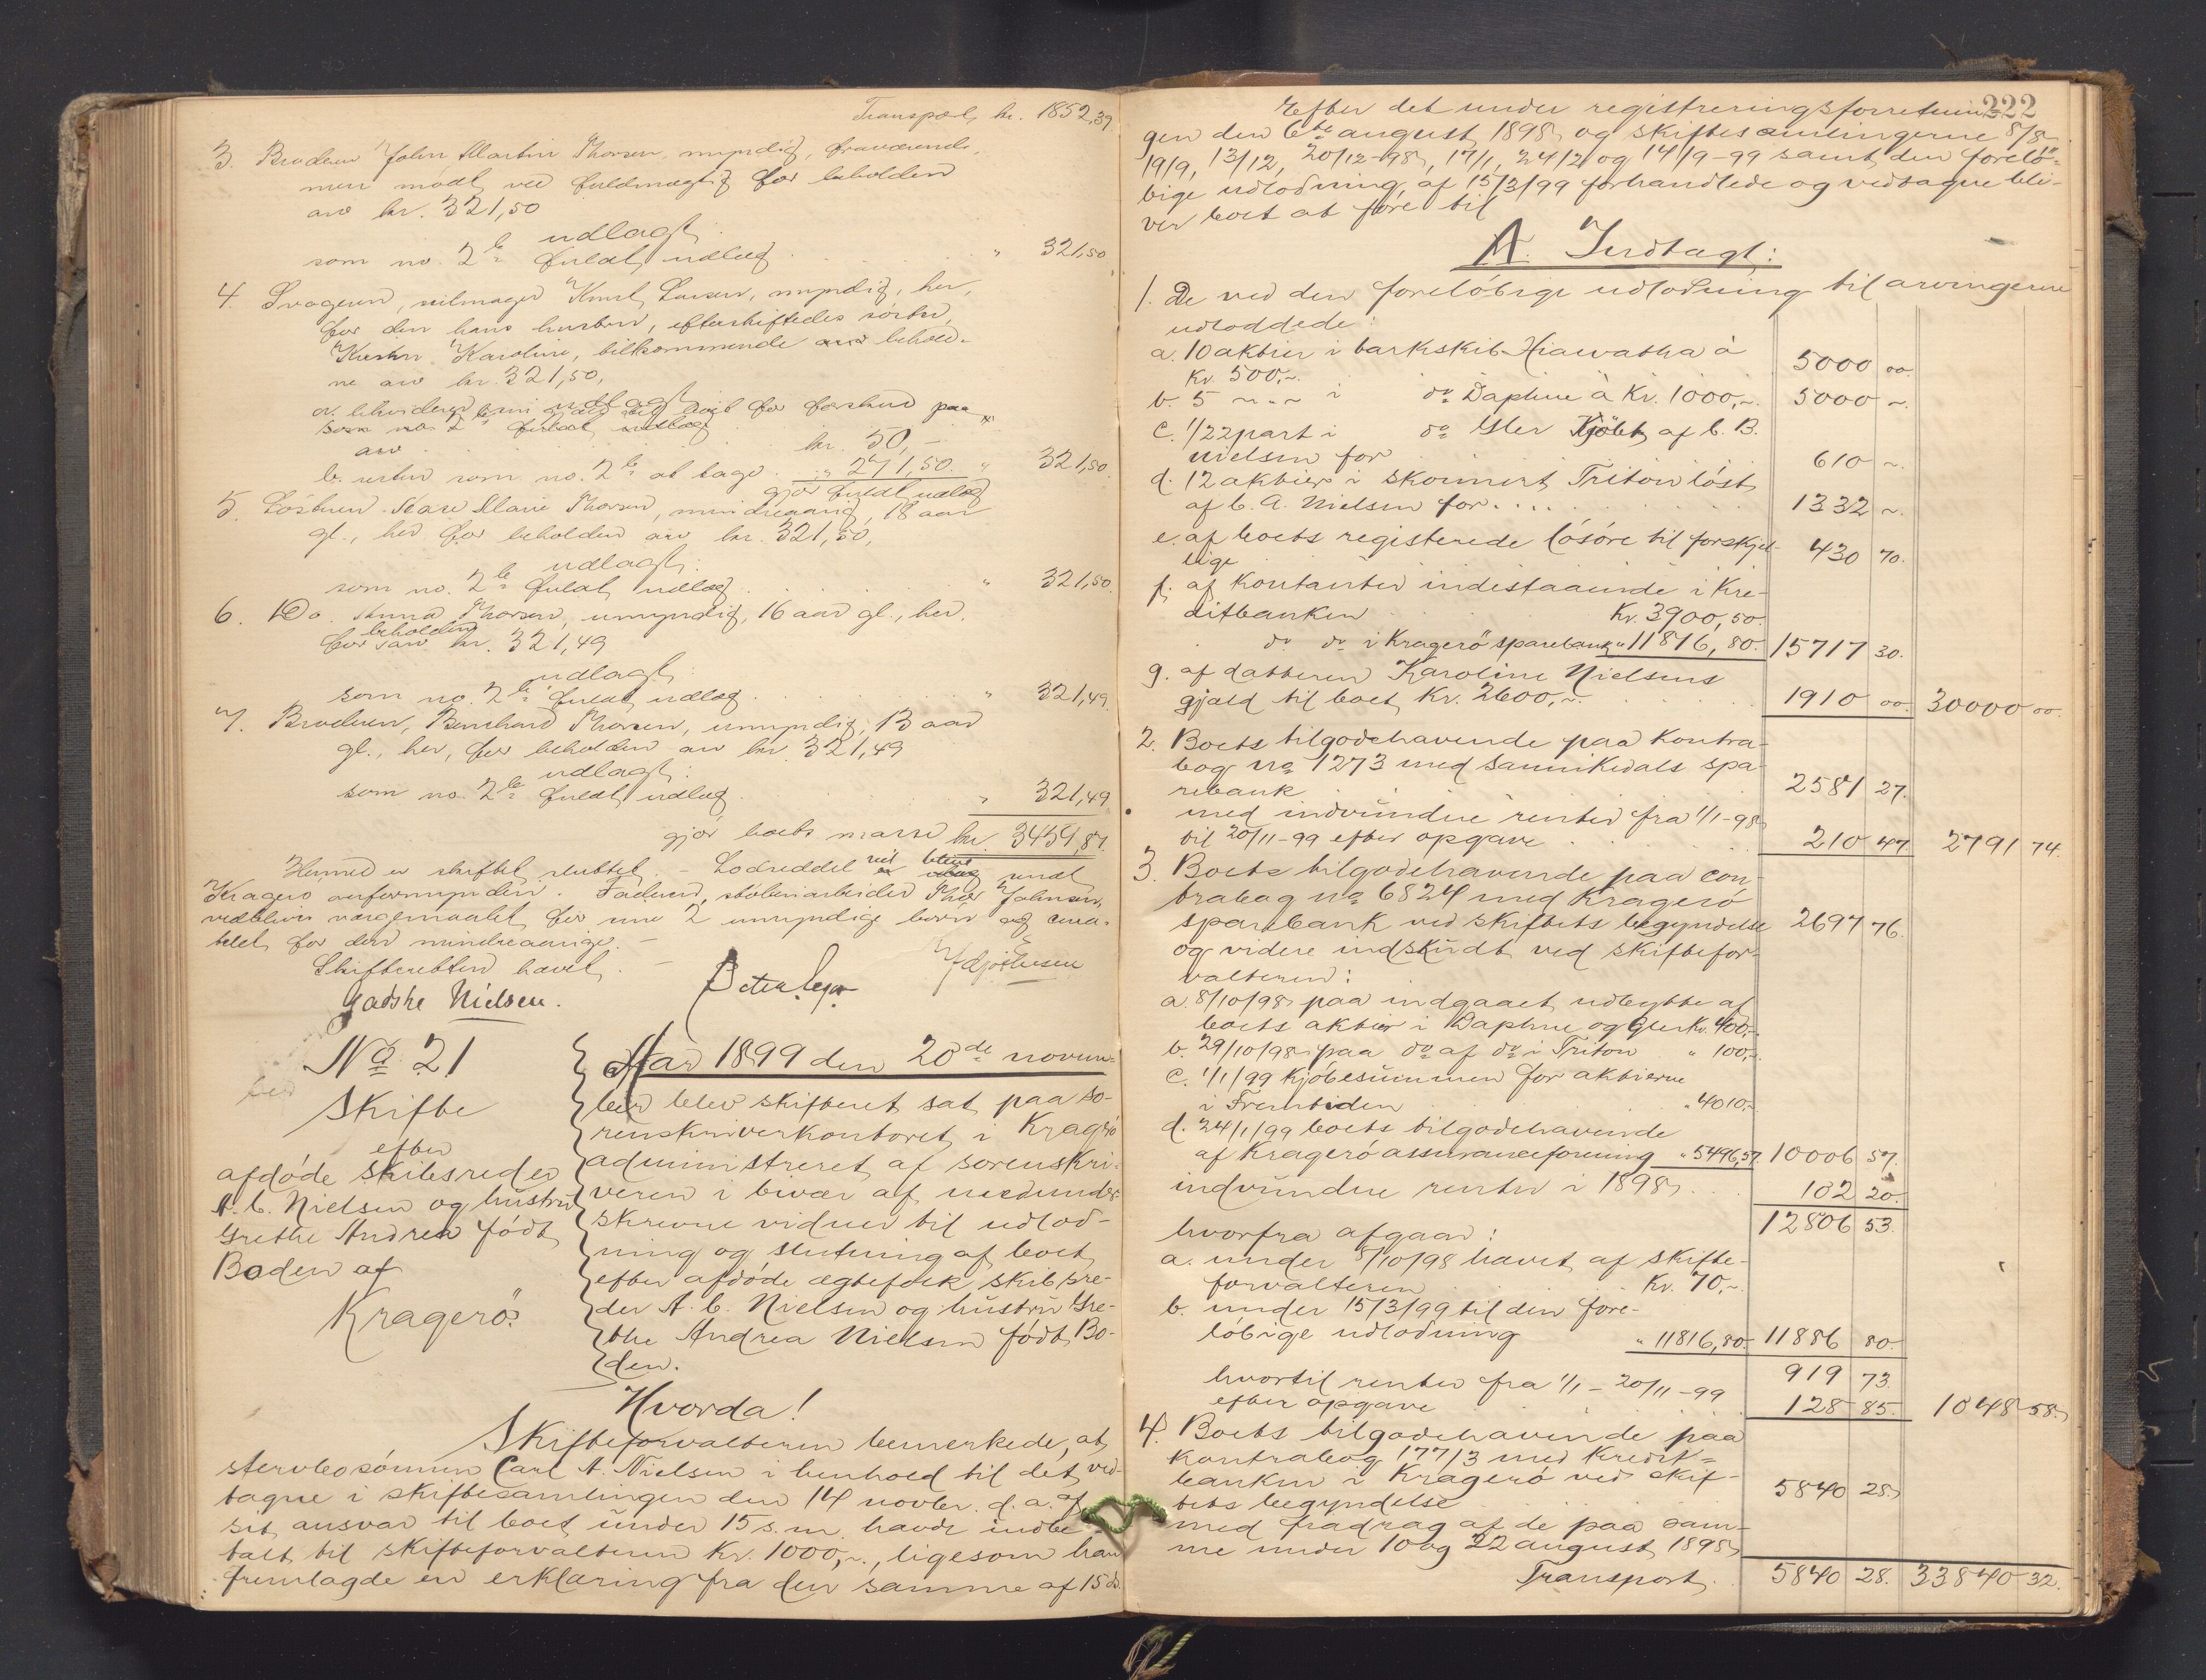 Transport, kr. 1852,39.
3. Broderen John Martin Thorsen, myndig, fraværende,
men mødt ved fuldmægtig for beholden
arv kr. 321,50
udlagt:
som no. 2 fuldt udlæg . . . " 321,50
4. Svogeren, seilmager Knut Larsen, myndig, her,
for den hans hustru, efterskiftedes søster,
Karoline, tilkommende behold-
ne arv kr. 321,50,
udlagt
a. for forskud paa
arv . . . kr. 50,-
b. som no. 2 at tage . " 271,50. " 321,50
gjør fuldt udlæg
5. Søsteren Marie Thorsen, mindreaarig, 18 aar
gl., her for beholden arv kr. 321,50,
udlagt:
som no. 2 fuldt udlæg . . . " 321,50.
6. Do. Anna Thorsen, umyndig, 16 aar gl., her,
for beholden arv kr. 321,49
udlagt:
som no. 2 fuldt udlæg . . . " 321,49.
7. Broderen, Bernhard Thorsen, umyndig, 13 aar
gl., her, for beholden arv kr. 321,49
udlagt:
som no. 2 fuldt udlæg . . . " 321,49
gjør boets masse kr. 3459,87.
Hermed er skiftet sluttet. - Lodseddel vil blive sendt
Kragerø overformynderi. Faderen, Thor Johnsen,
vedbliver værgemaalet for sine 2 umyndige børn og cura-
telet for den mindreaarige. -
Skifteretten hævet. -
Gadske Nielsen.
No. 21
Skifte
efter
afdøde skibsreder
A. C. Nielsen og hustru
Grethe Andrea født
Boden af
Kragerø.
Aar 1899 den 20de novem-
ber blev skifteret sat paa so-
renskriverkontoret i Kragerø
administreret af sorenskri-
veren i bivær af nedunder-
skrevne vidner til udlod-
ning og slutning af boet
efter afdøde ægtefolk, skibsre-
der A. C. Nielsen og hustru Gre-
the Andrea Nielsen født Bo-
den.
Hvorda!
Skifteforvalteren bemerkede, at
stervbosønnen Carl A. Nielsen i henhold til det ved-
tagne i skiftesamlingen den 14 novbr. d. a. af
sit ansvar til boet under 15 s. m. havde indbe-
talt til skifteforvalteren Kr. 1000,~, ligesom han
fremlagde en erklæring fra den samme af 15 ds.
222
Efter det under registreringsforretnin-
gen den 6te august 1898 og skiftesamlingerne 8/8,
19/9, 13/12, 20/12-98, 17/1, 24/2 og 14/9-99 samt den forelø-
bige udlodning af 15/3/99 forhandlede og vedtagne bli-
ver boet at føre til
A. Indtægt:
1. De ved den foreløbige udlodning til arvingerne
udloddede:
a. 10 aktier i barkskib Hiawatha à
Kr. 500,~. 5000 00.
b. 5 ~ . ~ i do Daphne à Kr. 1000,~. 5000 ~.
c. 1/22 part i do Gler Kjøbt af C. B.
Nielsen for 610 ~.
d. 12 aktier i skonnert Triton løst
af C. A. Nielsen for . . . . 1332 ~.
e. af boets registerede løsøre til forskjel-
lige 430 70.
f. af Kontanter indestaaende i Kre-
ditbanken Kr. 3900,50.
do do i Kragerø sparebank " 11816,80. 15717 30.
g. af datteren Karoline Nielsens
gjæld til boet Kr. 2600,~. 1910 00. 30000 00.
2. Boets tilgodehavende paa Kontra-
bog No 1273 med Sannikedals spa-
rebank 2581 27.
med indvundne renter fra 1/1-98
til 20/11-99 efter opgave 210 47 2791 74.
3. Boets tilgodehavende paa con-
trabog No 6824 med Kragerø
sparebank ved skiftets begyndelse 2697 76.
og videre indskudt ved skiftefor-
valteren:
a. 8/10/98 paa indgaaet udbytte af
boets aktier i Daphne og Gler Kr. 400,~.
b. 29/10/98 paa do af do i Triton " 100,~.
c. 1/1/99 Kjøbesummen for aktierne
i Fremtiden " 4010,~
d. 24/1/99 boets tilgodehavende
af Kragerø assuranceforening " 5496,57. 10006 57.
indvundne renter i 1898 . . . 102 20.
12806 53.
hvorfra afgaar:
a. under 8/10/98 hævet af skifte-
forvalteren Kr. 70,~.
b. under 15/3/99 til den fore-
løbige udlodning " 11816,80. 11886 80.
919 73.
hvortil renter fra 1/1 - 20/11-99
efter opgave 128 85. 1048 58.
4. Boets tilgodehavende paa
Kontrabog 177/3 med Kredit-
banken i Kragerø ved skif-
tets begyndelse 5840 28.
med fradrag af de paa sam-
me under 10 og 22 august 1898
Transport. 5840 28. 33840 32.